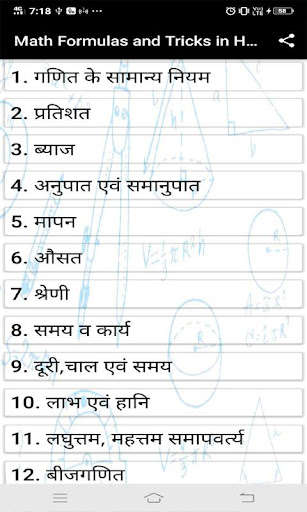 7:18
58
Math Formulas and Tricks in H...
1. गणित के सामान्य नियम
2. प्रतिशत
3. ब्याज
4. अनुपात एवं समानुपात
5. मापन
6. औसत
7. श्रेणी
8. समय व कार्य
9. दूरी,चाल एवं समय
10. लाभ एवं हानि
11. लघुत्तम, महत्तम समापवर्त्य
12. बीजगणित